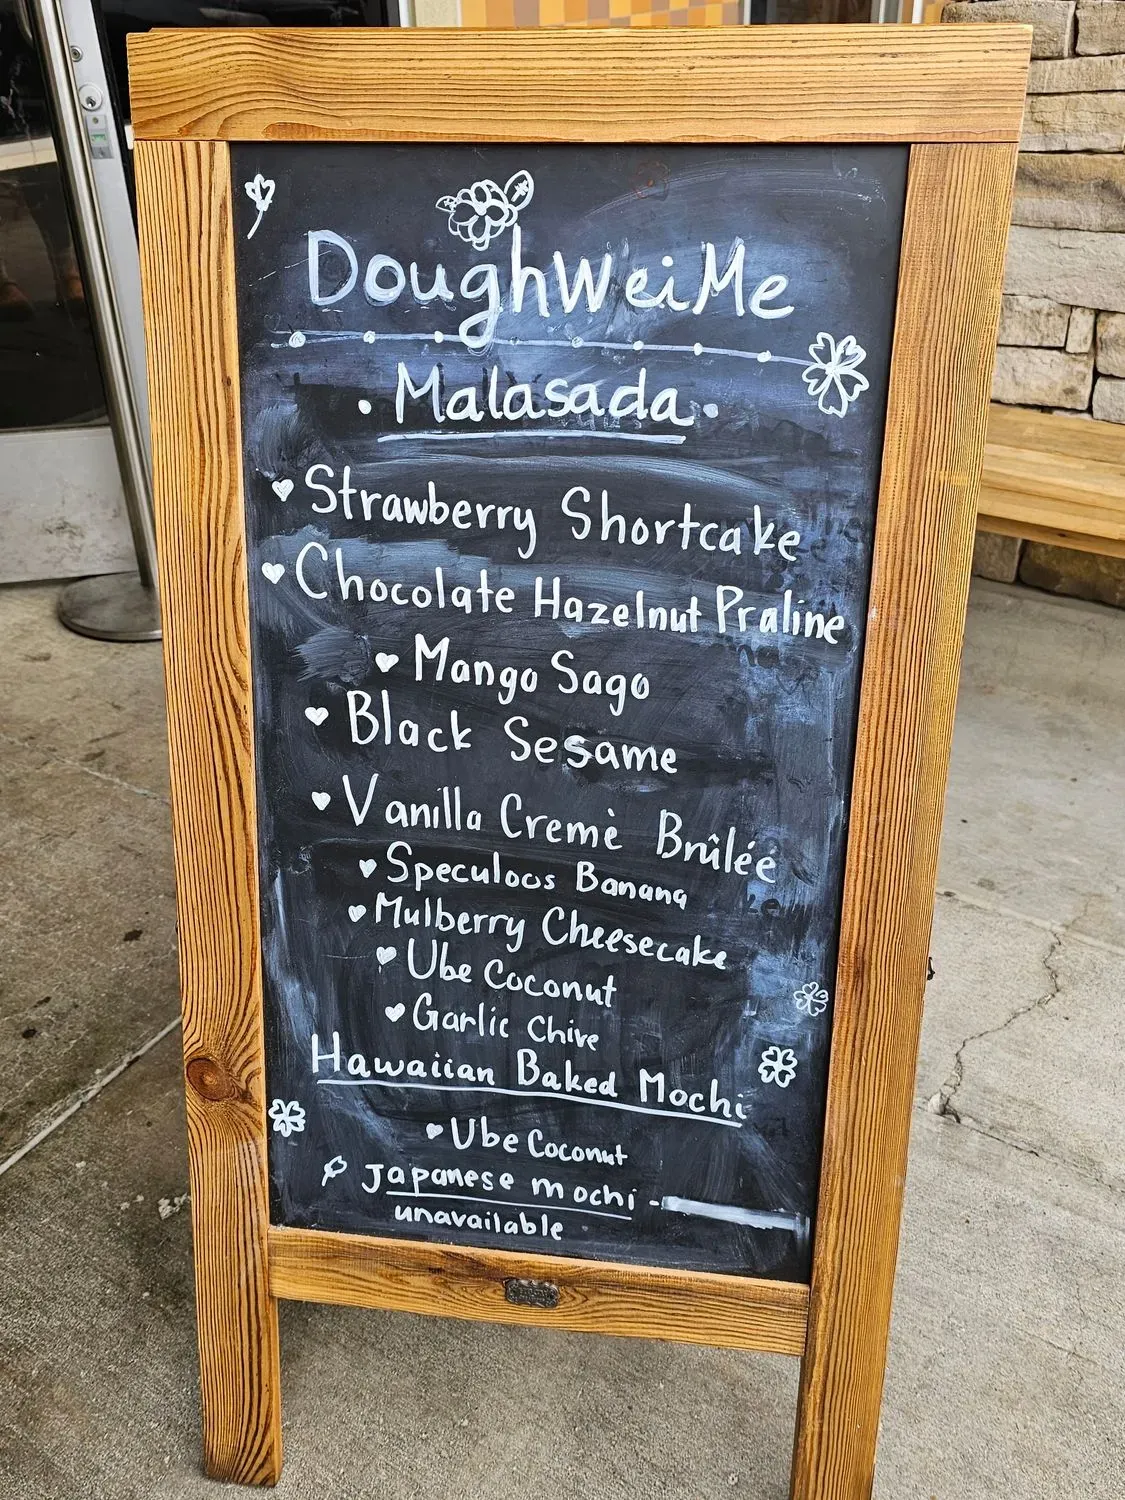 DoughWeiMe
Malasada
Strawberry Shortcake
Chocolate Hazelnut Praline
Mango Sago
Black Sesame
Vanilla Cremè Brûléé
Speculoos Banana
Mulberry Cheesecake
Ube Coconut
Garlic Chive
Hawaiian Baked Mochi
Ube Coconut
Japanese mochi -
unavailable